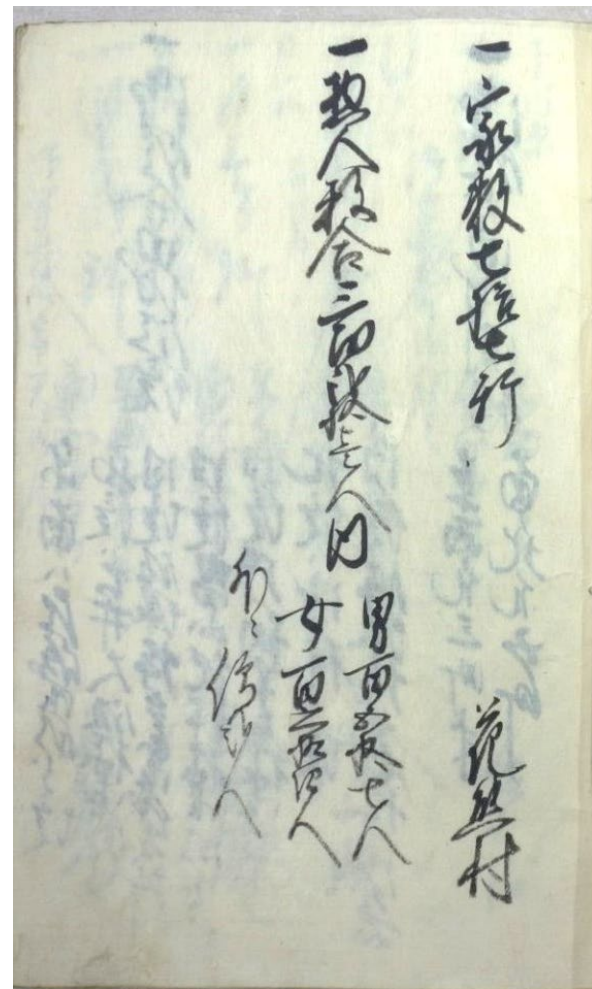 一家数七拾七軒
花熊村
一惣人数合三百弐拾壱人内
男百五拾七人
女百六拾四人
外ニ僧弐人